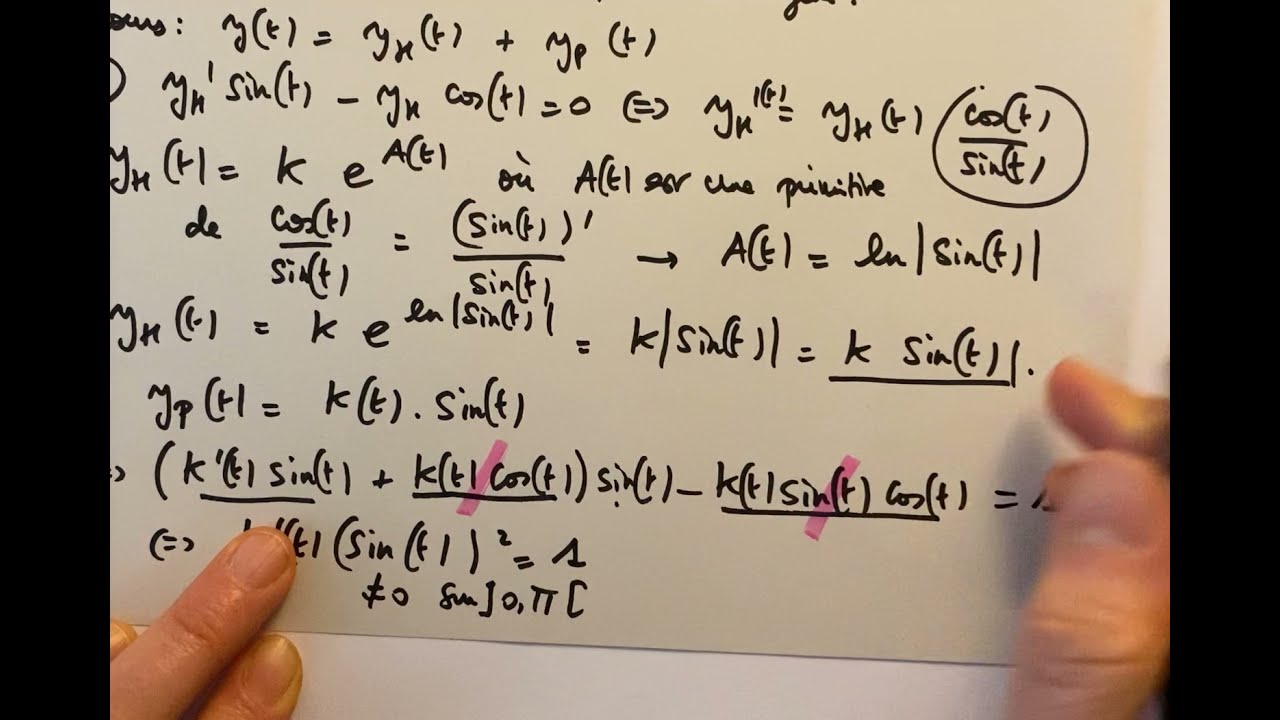 : y(t) = y_H(t) + y_p(t)
y_H' sin(t) - y_H cos(t) = 0 (=) y_H'(t) = y_H(t) cos(t)/sin(t)
y_H(t) = k e^A(t) où A(t) est une primitive
de cos(t)/sin(t) = (sin(t))'/sin(t) → A(t) = ln|sin(t)|
y_H(t) = k e^ln|sin(t)| = k|sin(t)| = k sin(t)|.
y_p(t) = k(t) . sin(t)
(k'(t) sin(t) + k(t) cos(t)) sin(t) - k(t) sin(t) cos(t) = 1
(=) (t) (sin(t))² = 1
≠0 sur ]0,π[